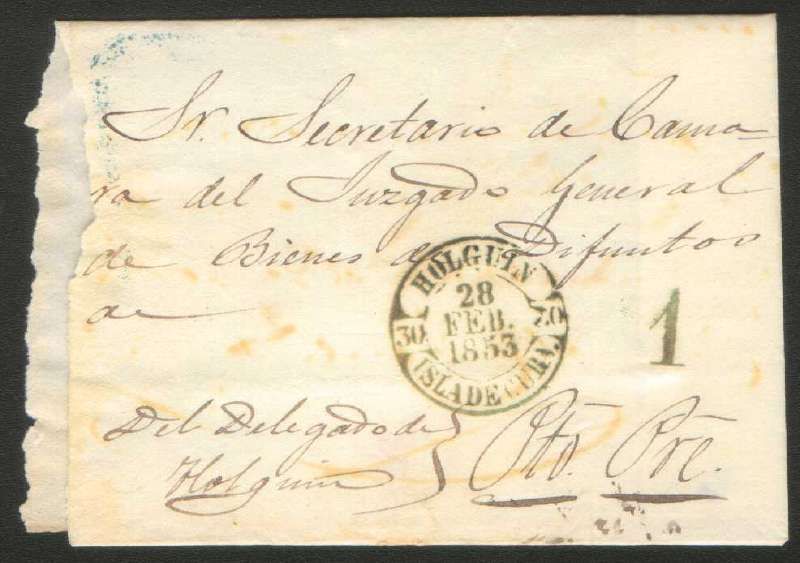 Sr. Secretario de Cama=
ra del Juzgado General
de Bienes de Difuntos
de
HOLGUIN
28
FEB.
1853
30
30
ISLA DE CUBA.
1
Del Delegado de
Holguin
Pto. Pre.